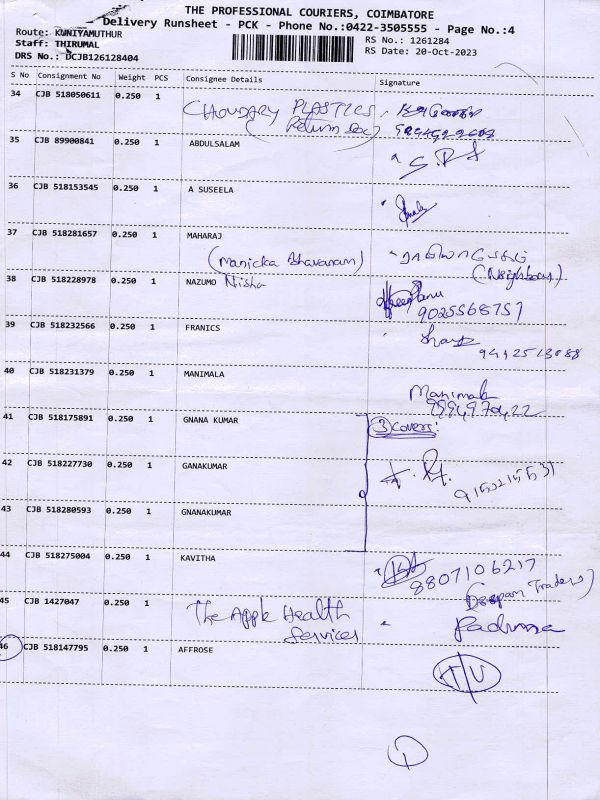 THE PROFESSIONAL COURIERS, COIMBATORE
Delivery Runsheet - PCK - Phone No.:0422-3505555 - Page No.:4
Route: KUNIYAMUTHUR
Staff: THIRUMAL
DRS No.: DCJB126128404
RS No.: 1261284
RS Date: 20-Oct-2023
S No Consignment No Weight PCS Consignee Details Signature
34 CJB 518050611 0.250 1 CHOUDARY PLASTICS,
(Return
35 CJB 89900841 0.250 1 ABDULSALAM
36 CJB 518153545 0.250 1 A SUSEELA
37 CJB 518281657 0.250 1 MAHARAJ
(Manicka Bhavanam) (Neighbour)
38 CJB 518228978 0.250 1 NAZUMO Nisha
9025568757
39 CJB 518232566 0.250 1 FRANICS
40 CJB 518231379 0.250 1 MANIMALA
Manimala
41 CJB 518175891 0.250 1 GNANA KUMAR 3 Covers:
42 CJB 518227730 0.250 1 GANAKUMAR
43 CJB 518280593 0.250 1 GNANAKUMAR
44 CJB 518275004 0.250 1 KAVITHA
8807106217
(Deepam Traders)
45 CJB 1427047 0.250 1 The Apple Health
Services Padma
46 CJB 518147795 0.250 1 AFFROSE
1